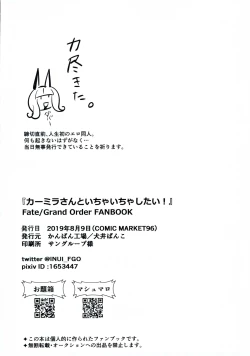 力尽きた。
締切直前、人生初のエロ同人。
何も起きないはずがなく…
当日無事発行できていることを祈ります。
『カーミラさんといちゃいちゃしたい！』
Fate/Grand Order FANBOOK
発行日 2019年8月9日（COMIC MARKET96）
発行元 かんぱん工場／大井ぱんこ
印刷所 サングループ様
twitter @INUI_FGO
pixiv ID :1653447
お題箱 マシュマロ
＊この本は個人的に作られたファンブックです。
無断転載・オークションへの出品を禁止します。